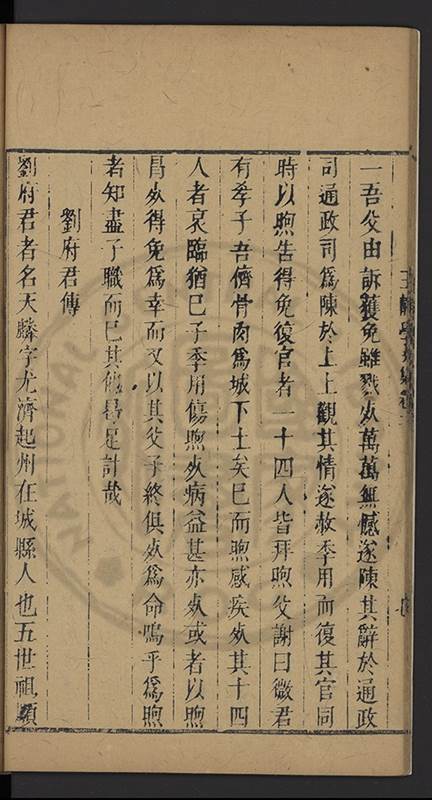 一吾父由訴獲免雖戮死萬萬無憾遂陳其辭於通政
司通政司爲陳於上上觀其情遂赦季用而復其官同
時以煦告得免復官者一十四人皆拜煦父謝曰微君
有孝子吾儕骨肉爲城下土矣已而煦感疾死其十四
人者哀臨猶已子季用傷煦死病益甚亦死或者以煦
旣死得免爲幸而又以其父子終俱死爲命嗚乎爲煦
者知盡子職而已其他曷足計哉
劉府君傳
劉府君者名天麟字尤濟起州在城縣人也五世祖顯